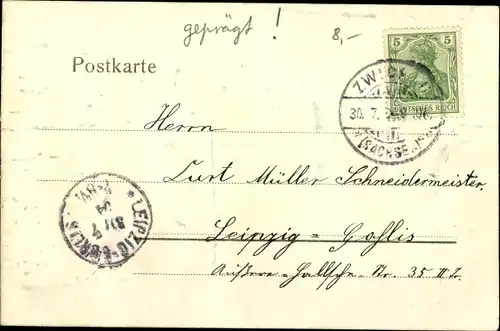 geprägt !
8,-
Postkarte
5 5
DEUTSCHES REICH
ZWICK
30.7.
(SACHSEN)
Herrn
Curt Müller Schneidermeister.
Leipzig-Gohlis
Äußere-Hallsche-Str. 35 II l.
LEIPZIG-GOHLIS